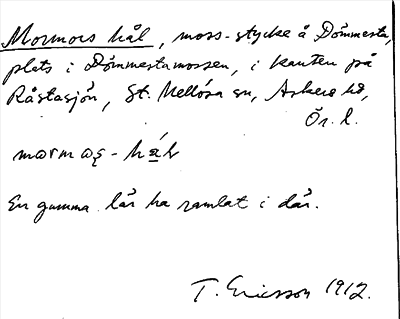 Mormors hål, moss-stycke å Dömmesta,
plats i Dömmestamossen, i kanten på
Råstasjön, St. Mellösa sn, Askers hd,
Ör. l.
En gumma lär ha ramlat i där.
T. Ericsson 1912.